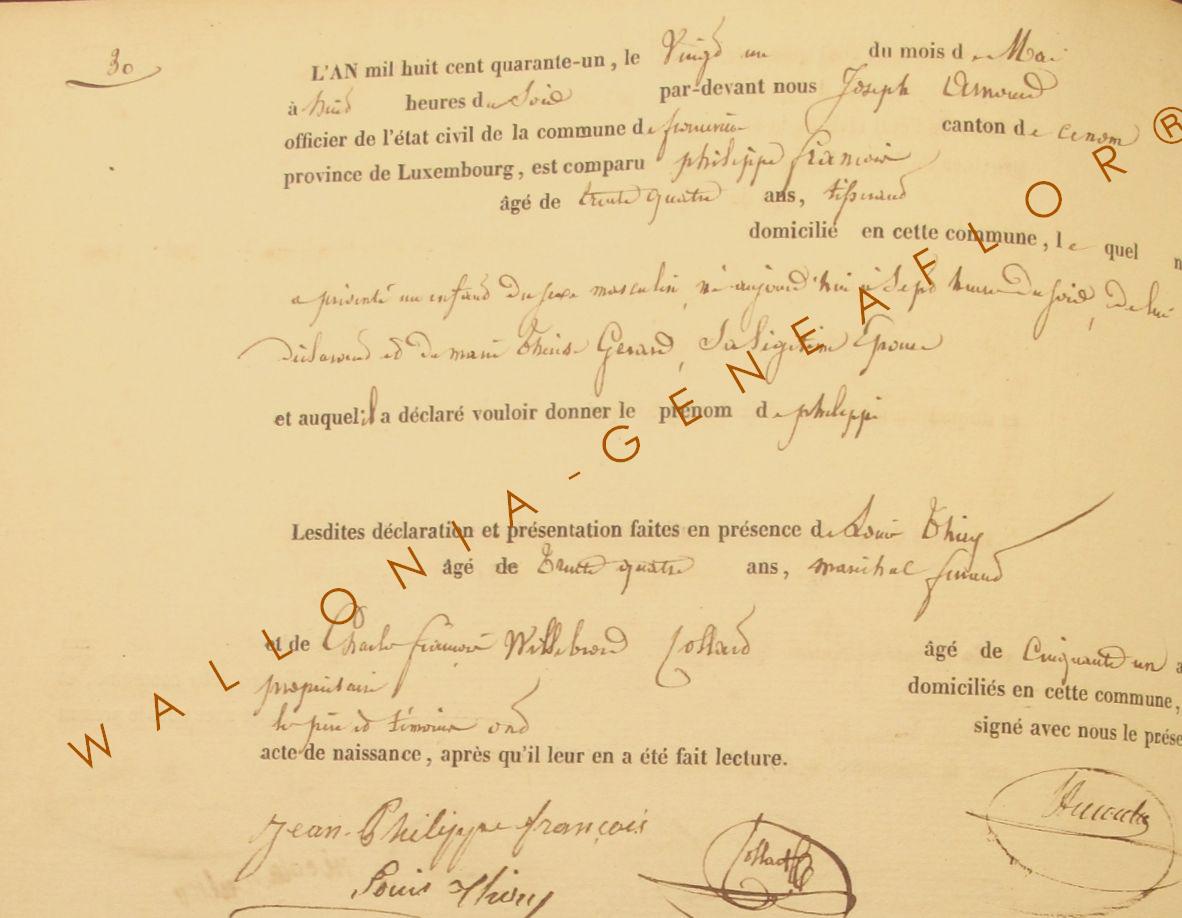 30
L'AN mil huit cent quarante-un, le Vingt un du mois de Mai
à huit heures du Soir par-devant nous Joseph
officier de l'état civil de la commune de canton de
province de Luxembourg, est comparu philippe françois
âgé de trente quatre ans, tisserand
domicilié en cette commune, lequel n
a présenté un enfant du sexe masculin, né aujourd'hui à Sept heures du soir, de lui
déclarant et de marie Gerard, Sa légitime Epouse
et auquel il a déclaré vouloir donner le prénom de philippe
Lesdites déclaration et présentation faites en présence de Louis Thiry
âgé de Trente quatre ans, maréchal ferrand
et de Charles françois Willebrord Collard âgé de Cinquante un a
propriétaire domiciliés en cette commune,
le père et témoins ont signé avec nous le prése
acte de naissance, après qu'il leur en a été fait lecture.
Jean-Philippe françois
Louis Thiry
Collard
WALLONIA-GENEAFLOR®